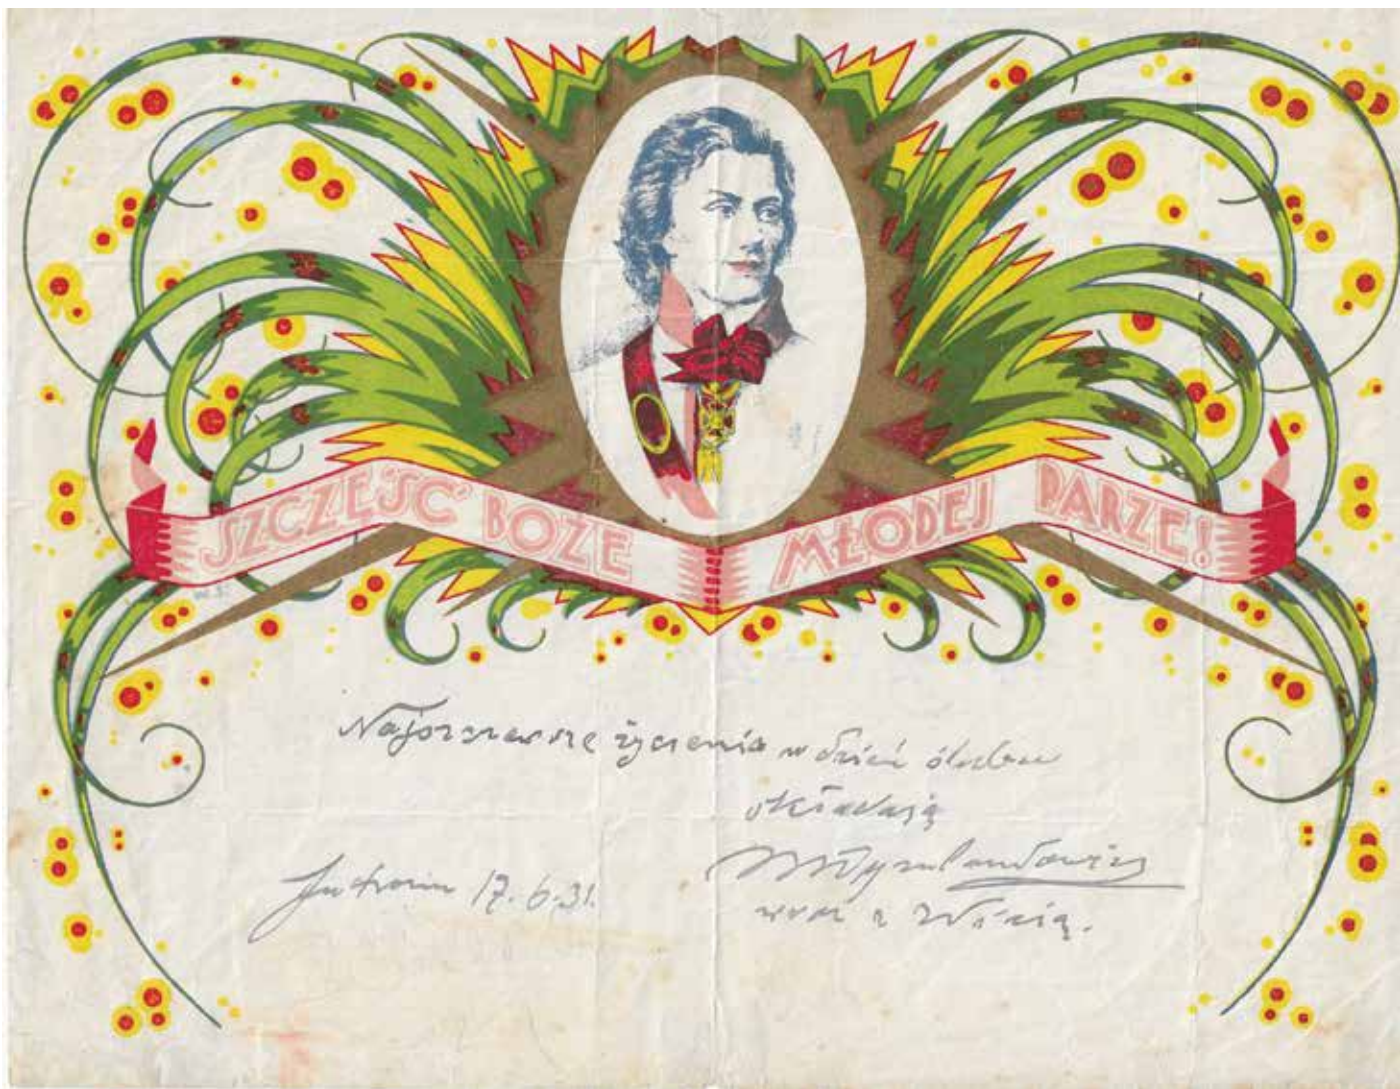 SZCZĘŚĆ BOŻE MŁODEJ PARZE!
Najszczersze życzenia w dzień ślubu
składają
Jutrosin 17.6.31.
wraz z